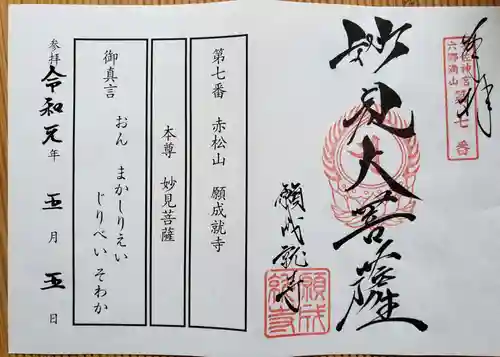 奉拝
宇佐神宮
六郷満山
第七番
妙見大菩薩
願成就寺
願成就寺
第七番 赤松山 願成就寺
本尊 妙見菩薩
御真言
おん まかしりえい
じりべい そわか
参拝 令和元年 五月 五日